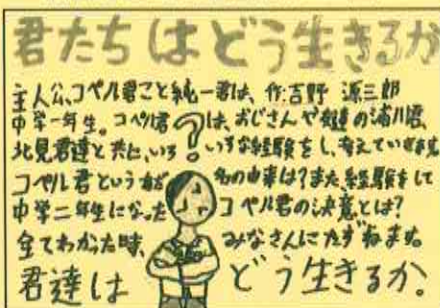 君たちはどう生きるか
主人公、コペル君こと純一君は、作:吉野 源三郎
中学一年生。コペル君は、おじさんや友達の浦川君、
北見君達と共に、いろ?いろな経験をし、考えていきます。
コペル君というあだ名の由来は?また、経験をして
中学二年生になったコペル君の決意とは?
全てわかった時、みなさんにたずねます。
君達はどう生きるか。